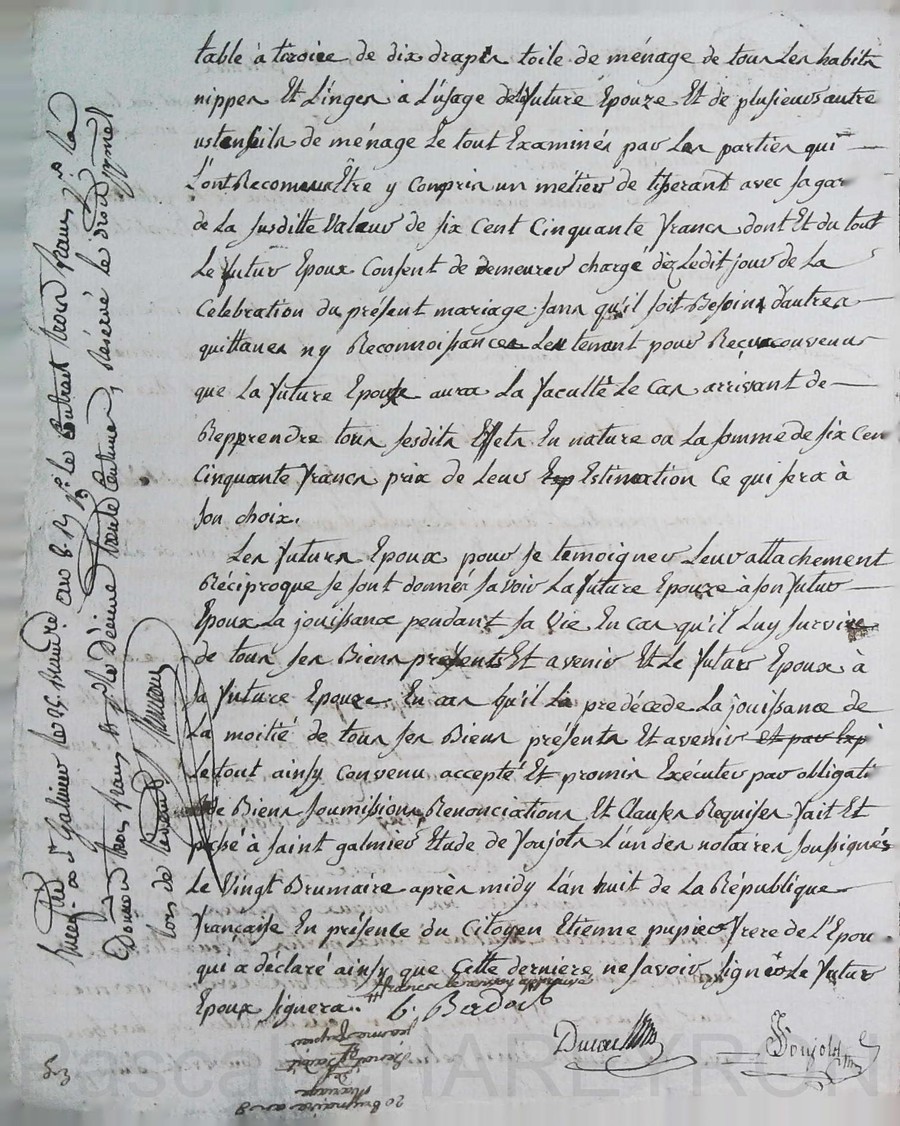 table à tiroire de dix draps toile de ménage de tous les habits
nippes Et Linges a L'usage de la future Epouze Et de plusieurs autre
ustensils de ménage Le tout Examinés par Les parties qui
L'ont Recomeu Être y Compris un métier de tiserant avec sa gar
de La susditte Valeur de six Cent Cinquante francs dont Et du tout
Le futur Epoux Consent de demeurer chargé dès Ledit jour de La
Celebration du présent mariage sans qu'il soit Besoins d'autres
quittances ny Reconnoissances Les tenant pour Reçus convenus
que La future Epouse aura La faculté Le Cas arrivant de
Repprendre tous sesdits Effets En nature ou La somme de six Cen
Cinquante francs prix de Leur Estimation Ce qui sera à
son choix.
Les futurs Epoux pour se temoigner Leur attachement
Réciproque se sont donnés savoir La future Epouze à son futur
Epoux La jouissance pendant sa Vie En cas qu'il Luy survive
de tous ses Biens présents Et avenir Et Le futur Epoux à
sa future Epouze En cas qu'il La predécede La jouissance de
La moitié de tous ses Biens présents Et avenir et par Exp
Le tout ainsy Convenu accepté Et promis Exécuter par obligati
de Biens soumissions Renonciations Et Clauses Requises fait Et
passé à saint galmier Etude de Poujols L'un des notaires soussignés
Le Vingt Brumaire après midy L'an huit de La République
française En présence du Citoyen Etienne pupier frere de L'Epou
qui a déclaré ainsy que Cette derniere ne savoir signer Le futur
Epoux signera.
francs le renvoy approuvé
Poujols
à St Galmier Le 25 Brumre an 8
trois francs
20 Brumaire an 8
Mariage
de
jeanne pupier